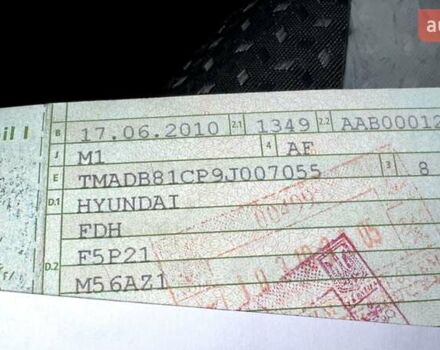 au
il I
B 17.06.2010 2.1 1349 2.2 AAB00012
J M1 4 AF
E TMADB81CP9J007055 3 8
D.1 HYUNDAI
FDH
D.2 F5P21
M56AZ1